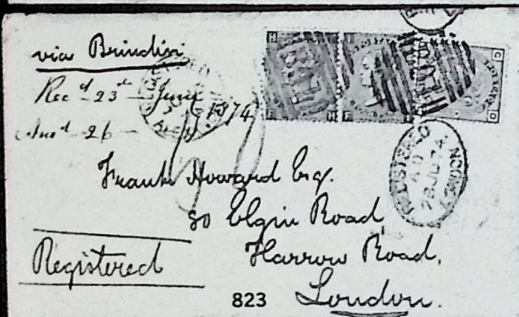 via Brindisi
Recd 23rd June 1874
Ansd 26
REGISTERED
LONDON
Frank Howard Esq.
80 Elgin Road,
Harrow Road,
London.
Registered
823